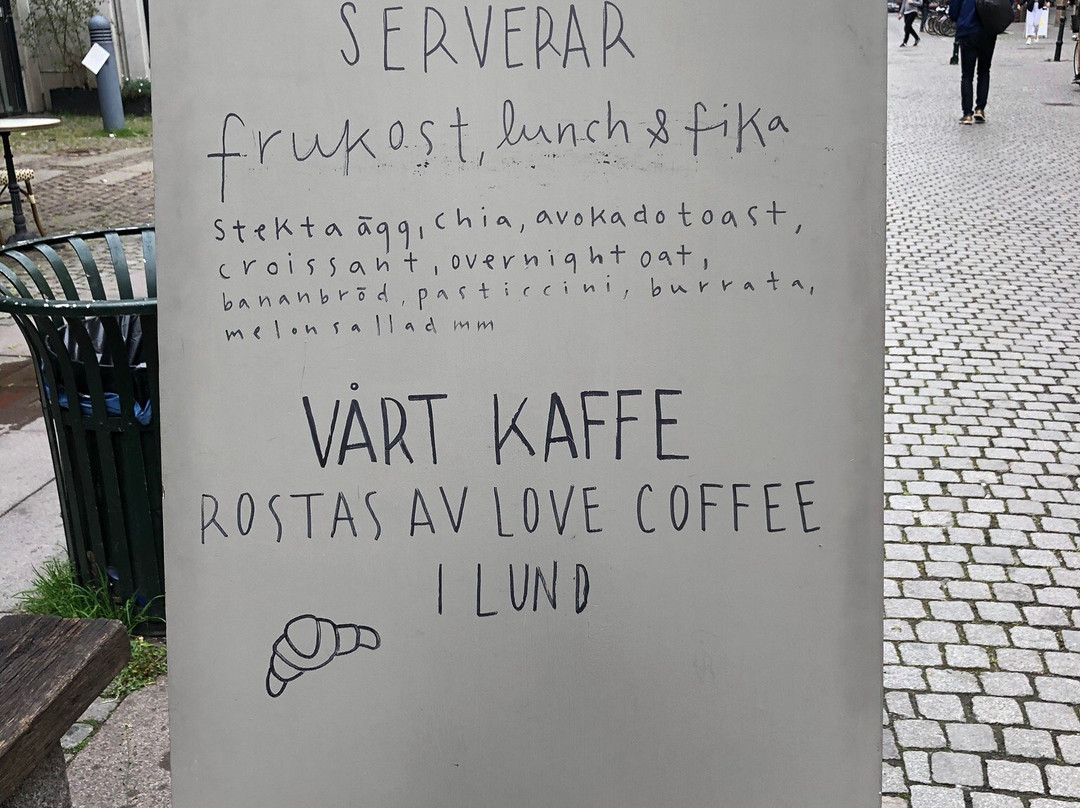 SERVERAR
frukost, lunch & fika
stekta ägg, chia, avokadotoast,
croissant, overnight oat,
bananbröd, pasticcini, burrata,
melonsallad mm
VÅRT KAFFE
ROSTAS AV LOVE COFFEE
I LUND